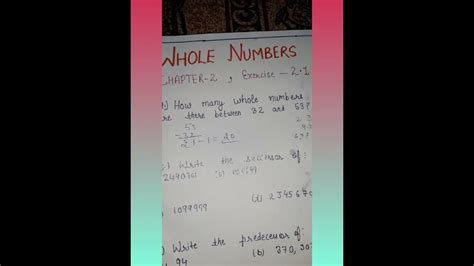 WHOLE NUMBERS
CHAPTER-2, Exercise - 2.1
How many whole numbers
are there between 32 and 53?
53
-32
21-1=20
Write the successor of:
2440701 (b) 100199
1099999 (d) 2345670
Write the predecessor of:
94 (b)